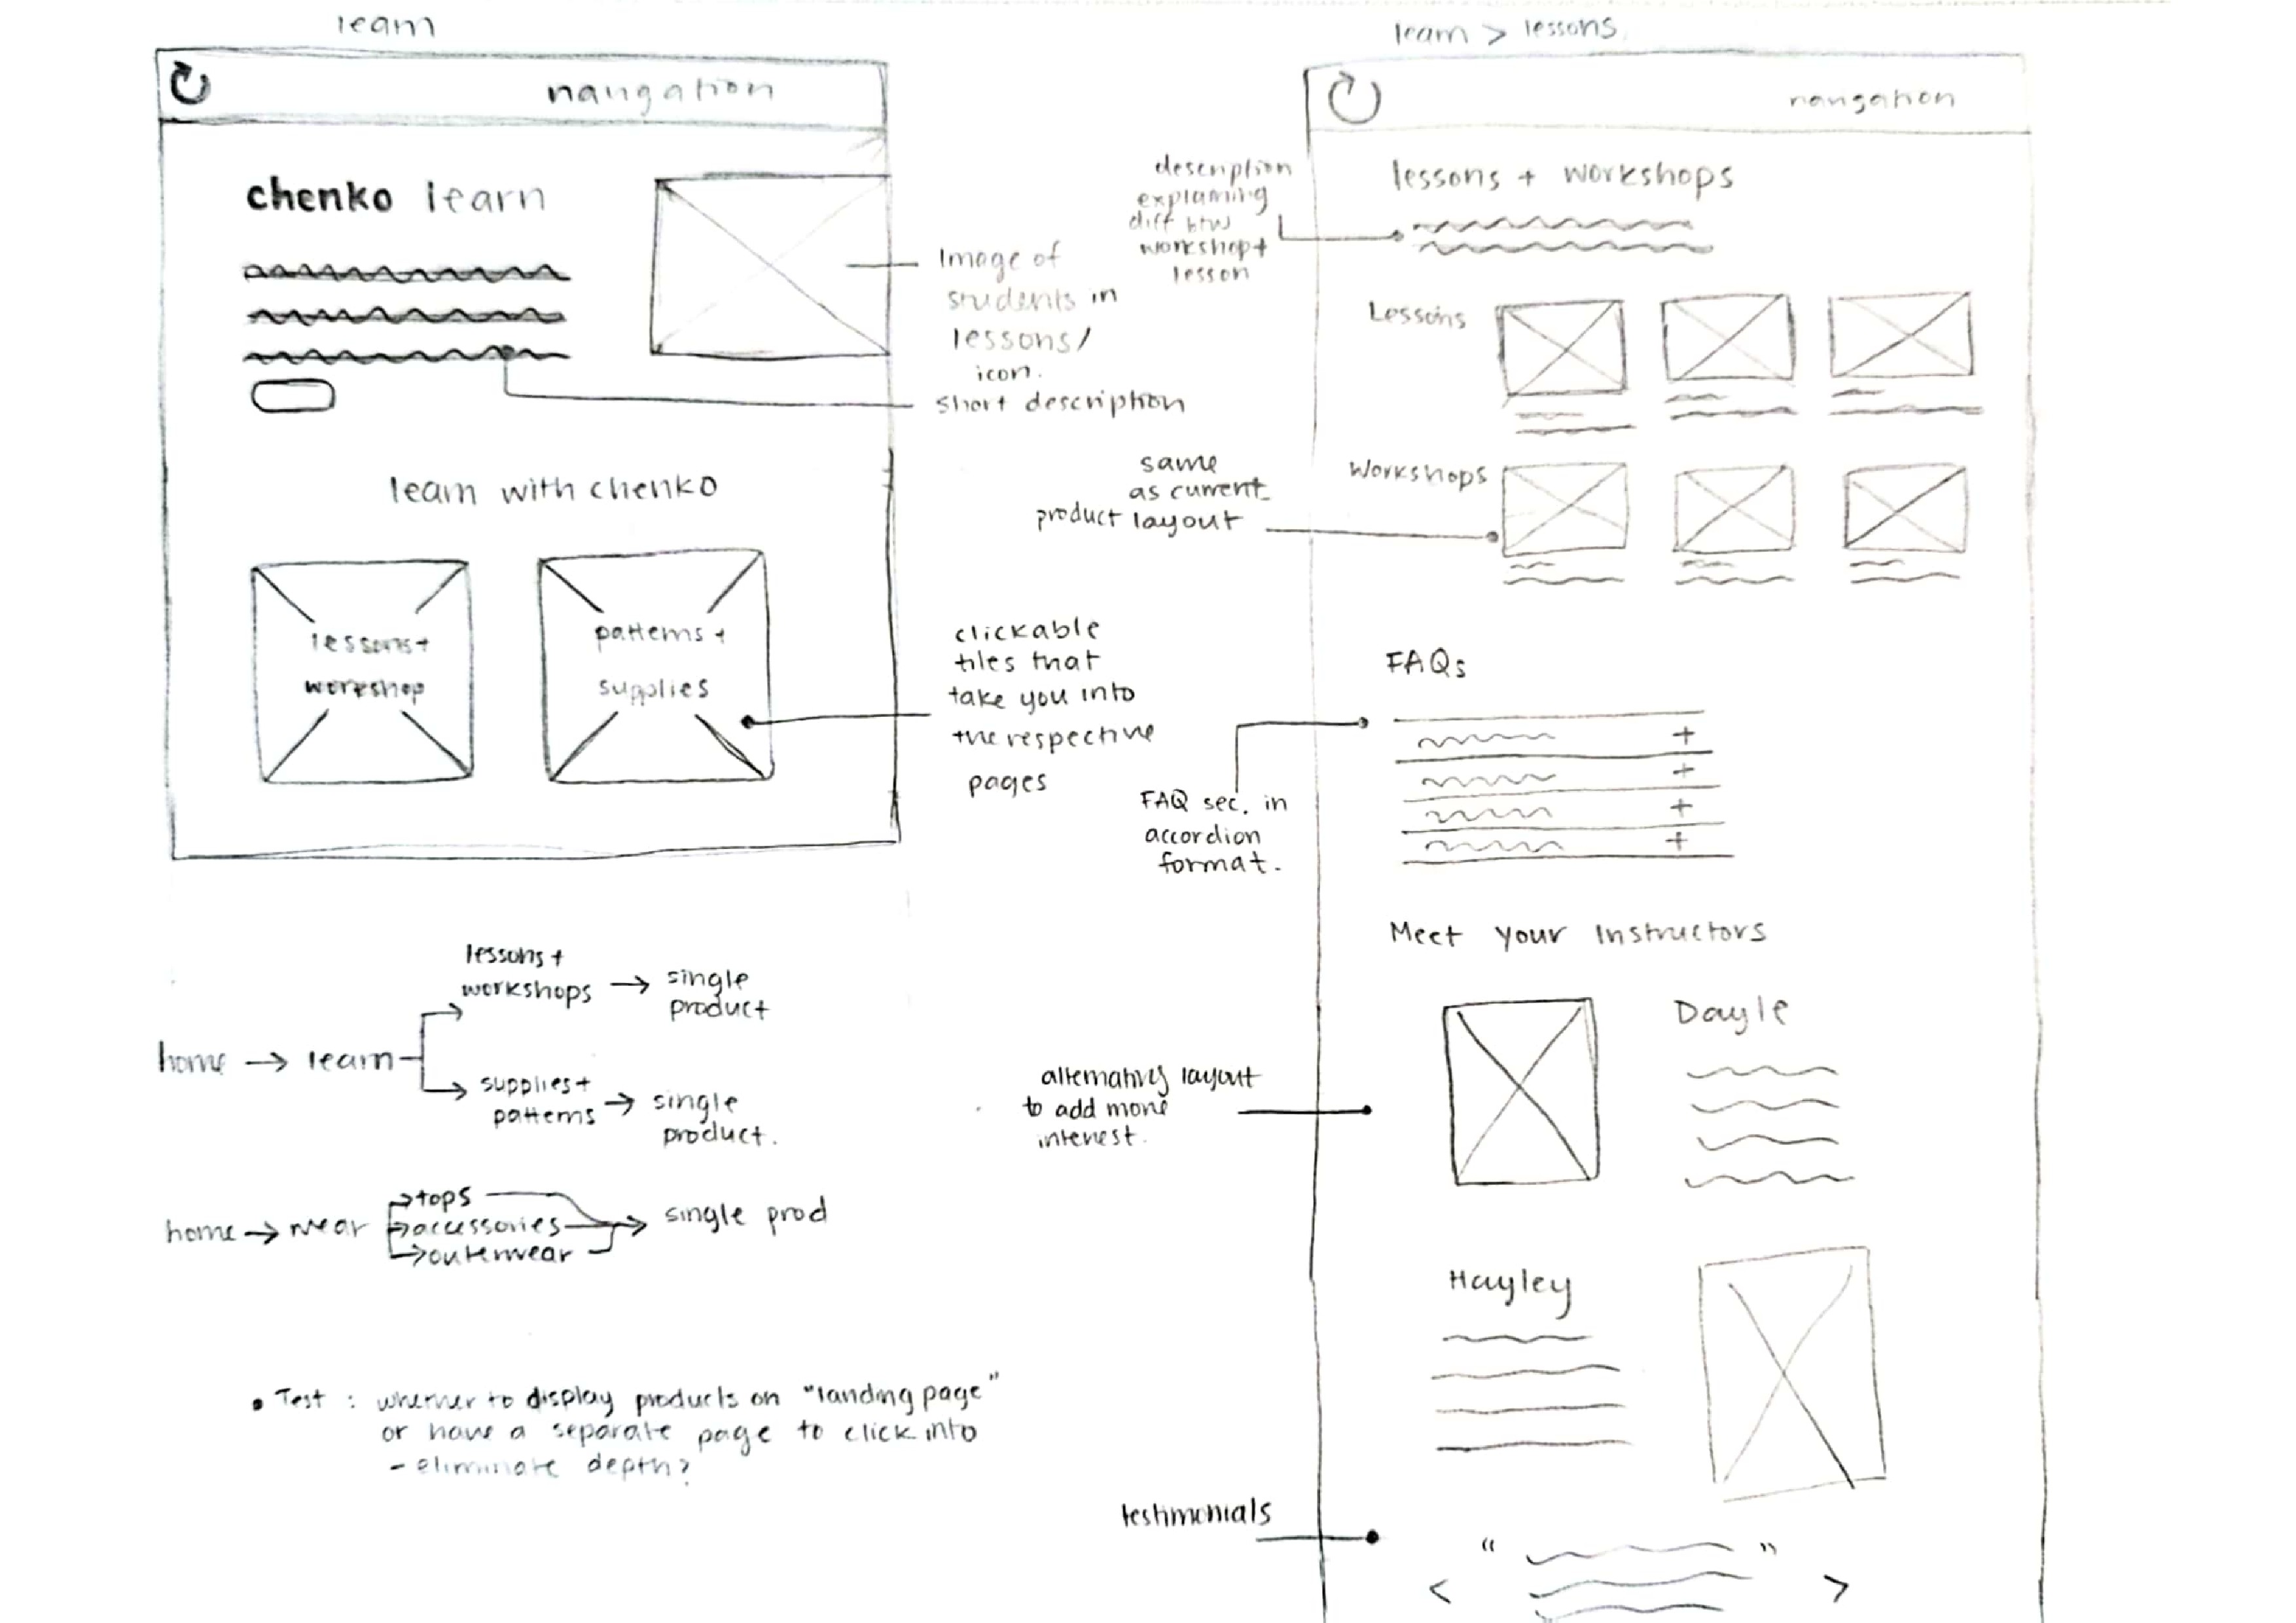 learn
navigation
chenko learn
Image of
students in
lessons/
icon.
short description
learn with chenko
lessons+
workshop
patterns +
supplies
clickable
tiles that
take you into
the respective
pages
lessons+
workshops → single
product
home → learn
supplies+
patterns → single
product.
home → wear
→ tops
→ accessories
→ outerwear
→ single prod
• Test : whether to display products on "landing page"
or have a separate page to click into
- eliminate depth?
learn > lessons
navigation
description
explaining
diff btw
workshop+
lesson
lessons + workshops
Lessons
same
as current
product layout
Workshops
FAQs
+
+
+
+
FAQ sec. in
accordion
format.
Meet your Instructors
Dayle
alternating layout
to add more
interest.
Hayley
testimonials
" "
< >